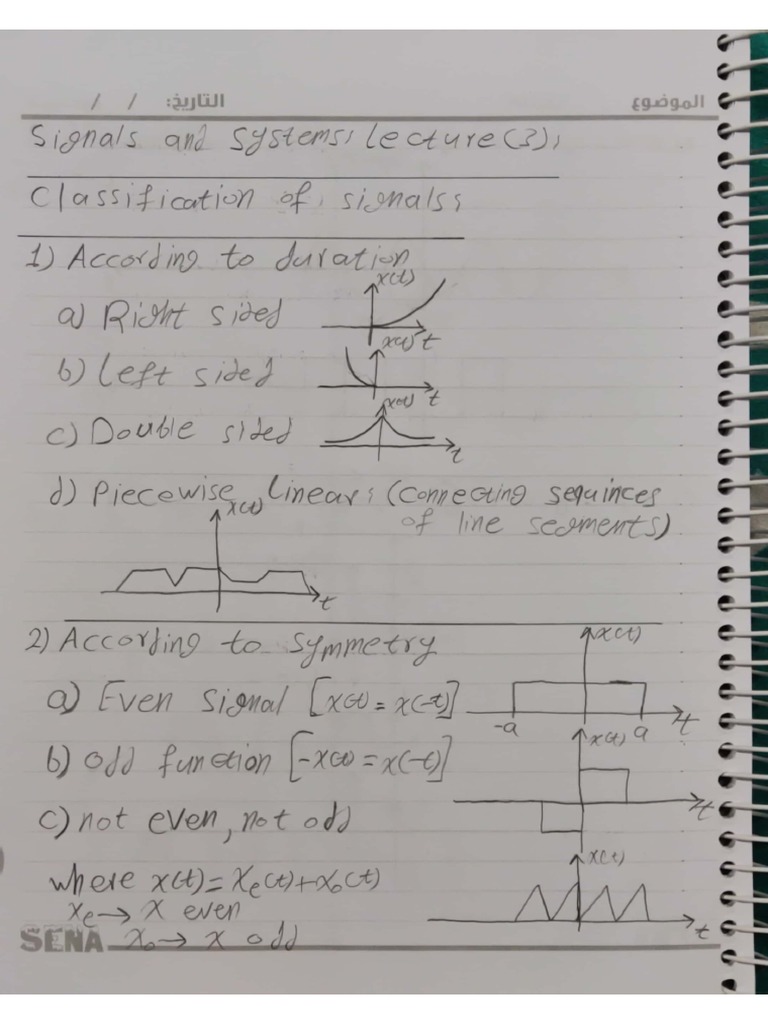 التاريخ: / / الموضوع
Signals and Systems, lecture (3):
Classification of signals:
1) According to duration
x(t)
a) Right sided
t
x(t)
b) Left sided
t
x(t)
c) Double sided
t
d) Piecewise linear: (connecting sequinces
x(t)
of line segments)
t
2) According to symmetry
x(t)
a) Even signal [x(t) = x(-t)]
-a a t
x(t)
b) odd function [-x(t) = x(-t)]
t
c) not even, not odd
x(t)
where x(t) = xe(t) + xo(t)
xe → x even
t
SENA xo → x odd